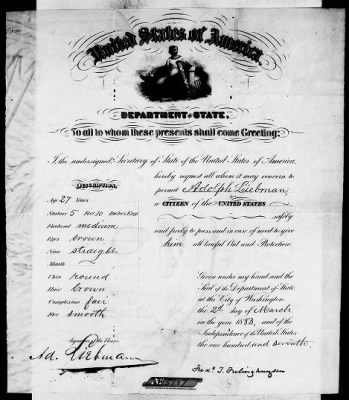 United States of America
DEPARTMENT OF STATE.
To all to whom these presents shall come Greeting:
I the undersigned, Secretary of State of the United States of America,
hereby request all whom it may concern to
permit Adolph Liebman,
a CITIZEN of the UNITED STATES
safely
and freely to pass and in case of need to give
them all lawful Aid and Protection
DESCRIPTION.
Age 27 Years
Stature 5 Feet 10 Inches Eng.
Forehead medium
Eyes brown
Nose straight
Mouth
Chin round
Hair brown
Complexion fair
Face smooth
Signature of the Bearer
Ad. Liebmann
Given under my hand and the
Seal of the Department of State,
at the City of Washington,
the 2d day of March
in the year 1883, and of the
Independence of the United States
the one hundred and seventh.
Fredk. T. Frelinghuysen